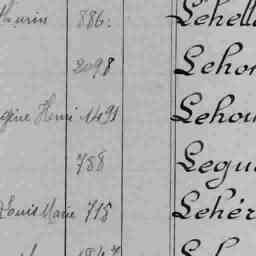 886. Lehell
2098 Lehou
Henri 1491 Lehou
788 Legu
Louis Marie 718 Lehér